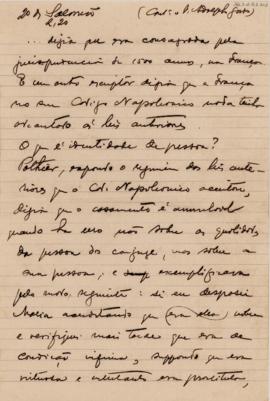 20 de Salomão (Cont. o D. Joseph Gato)
2/20
... dizia que era consagrada pela
jurisprudencia de 1500 annos, na França
E um outro escriptor dizia que a França
no seu Codigo Napoleonico nada tinha
às leis anteriores.
O que é identidade de pessoa?
Pothier, expondo o regimen das leis ante-
riores que o Cod. Napoleonico aceitou,
dizia que o casamento é annullavel
quando ha erro não sobre as qualidades
da pessoa do conjuge, mas sobre a
sua pessoa; e exemplificava
pelo modo seguinte: si eu desposei
Maria acreditando que (era ella) nobre
e verifiquei mais tarde que era de
condição infima, suppondo que era
virtuosa e era prostituta,